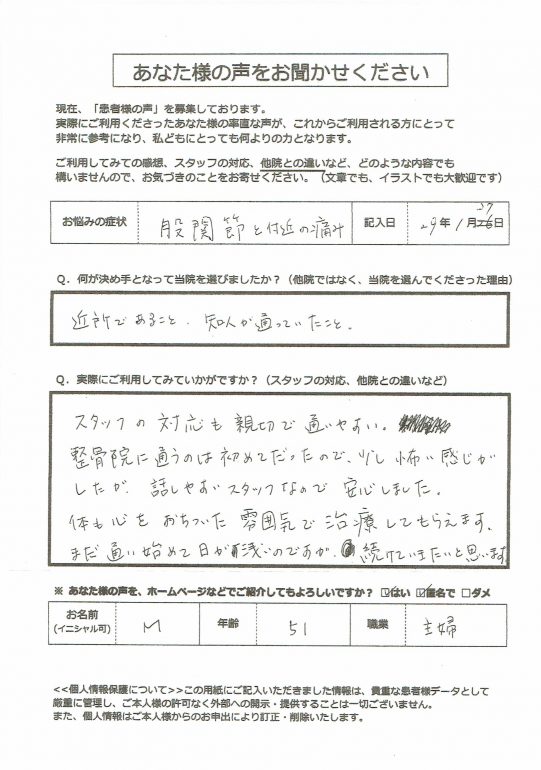 あなた様の声をお聞かせください
現在、「患者様の声」を募集しております。
実際にご利用くださったあなた様の率直な声が、これからご利用される方にとって
非常に参考になり、私どもにとっても何よりの力となります。
ご利用してみての感想、スタッフの対応、他院との違いなど、どのような内容でも
構いませんので、お気づきのことをお寄せください。（文章でも、イラストでも大歓迎です）
お悩みの症状 股関節と付近の痛み 記入日 29年1月27日
Q．何が決め手となって当院を選びましたか？（他院ではなく、当院を選んでくださった理由）
近所であること、知人が通っていたこと。
Q．実際にご利用してみていかがですか？（スタッフの対応、他院との違いなど）
スタッフの対応も親切で通いやすい。
整骨院に通うのは初めてだったので、少し怖い感じが
したが、話しやすいスタッフなので安心しました。
体も心もおちついた雰囲気で治療してもらえます。
まだ通い始めて日が浅いのですが、続けていきたいと思います。
※ あなた様の声を、ホームページなどでご紹介してもよろしいですか？ ☑はい ☑匿名で □ダメ
お名前 M 年齢 51 職業 主婦
(イニシャル可)
<<個人情報保護について>>この用紙にご記入いただきました情報は、貴重な患者様データとして
厳重に管理し、ご本人様の許可なく外部への開示・提供することは一切ございません。
また、個人情報はご本人様からのお申出により訂正・削除いたします。